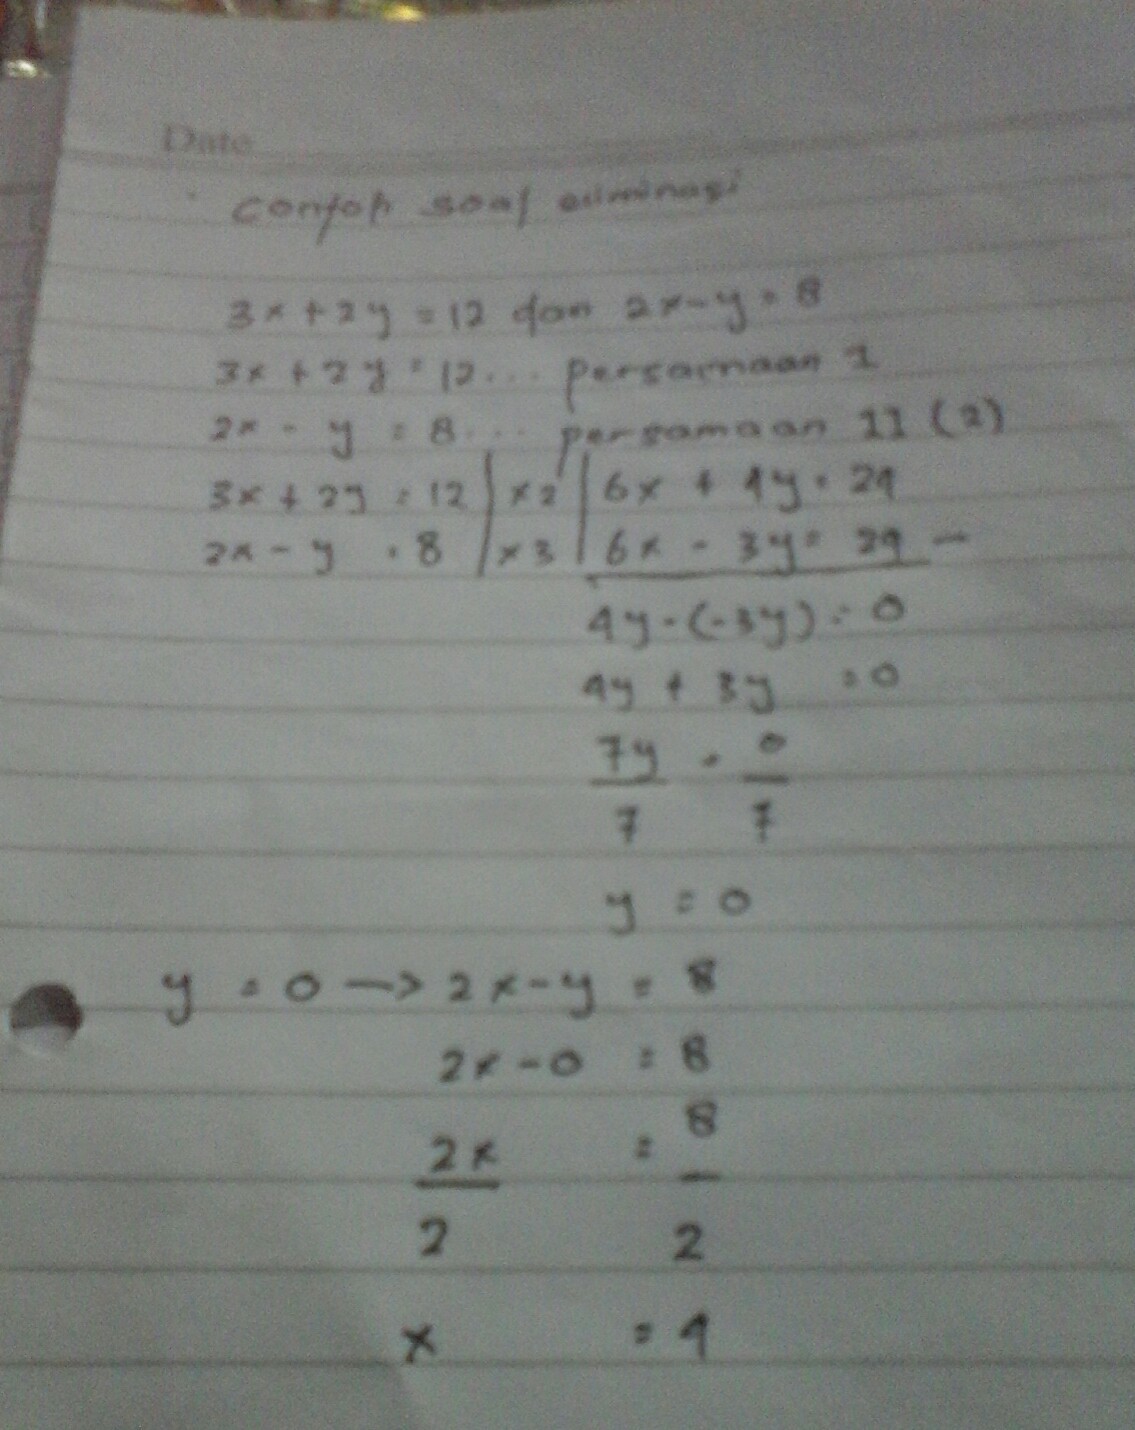 Date
contoh soal eliminasi
3x + 2y = 12 dan 2x - y = 8
3x + 2y = 12 ... persamaan 1
2x - y = 8 ... persamaan 11 (2)
3x + 2y = 12 | x2 | 6x + 4y = 24
2x - y = 8 | x3 | 6x - 3y = 24 -
4y - (-3y) = 0
4y + 3y = 0
7y = 0
7 7
y = 0
y = 0 -> 2x - y = 8
2x - 0 = 8
2x = 8
2 2
x = 4